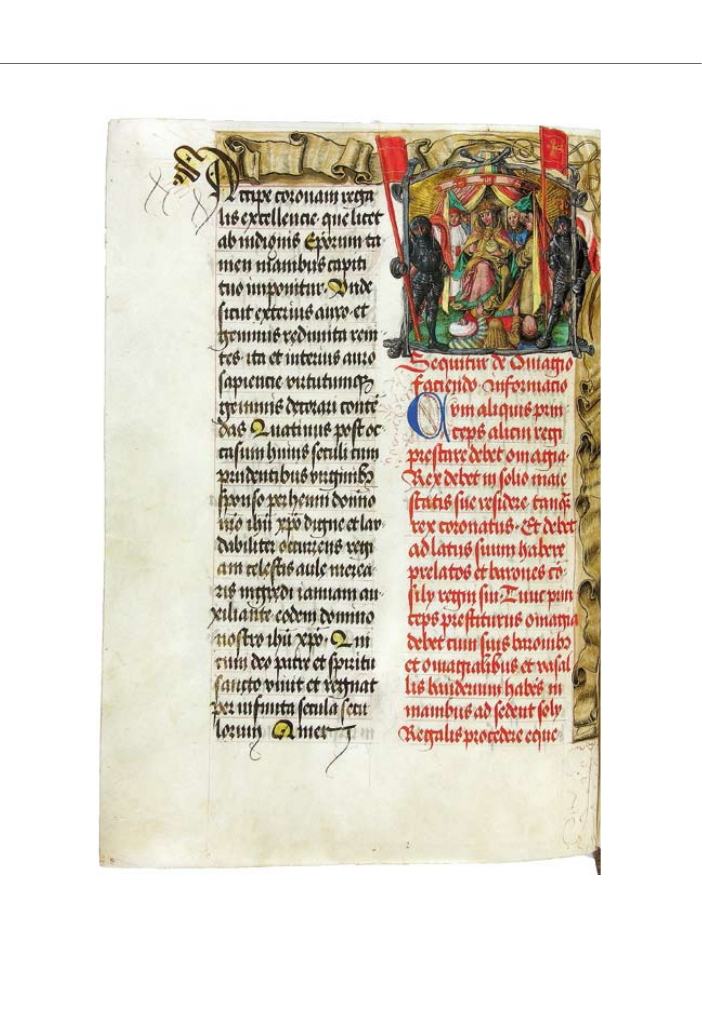 Accipe coronam rega
lis excellencie que licet
ab indignis Eporum ta
men manibus capiti
tuo imponitur. Unde
sicut exterius auro et
gemmis redimita reni
tes ita et interius auro
sapiencie virtutumqz
gemmis decorari conte
das Quatinus post oc
casum huius seculi cum
prudentibus virginibz
sponso perhenni domino
nro ihu xpo digne et lau
dabiliter occurrens regi
am celestis aule merea
ris ingredi ianuam au
xiliante eodem domino
nostro ihu xpo. Qui
cum deo patre et spiritu
sancto vivit et regnat
per infinita secula secu
lorum Amen
Sequitur de Omagio
faciendo Informacio
Cum aliquis prin
ceps alicui regi
prestare debet omagia
Rex debet in solio maie
statis sue residere tanqz
rex coronatus. Et debet
ad latus suum habere
prelatos et barones co
sily regni sui. Tunc prin
ceps prestiturus omagia
debet cum suis baronibz
et omagialibus et vasal
lis banderium habens in
manibus ad sedem soly
Regalis procedere eque